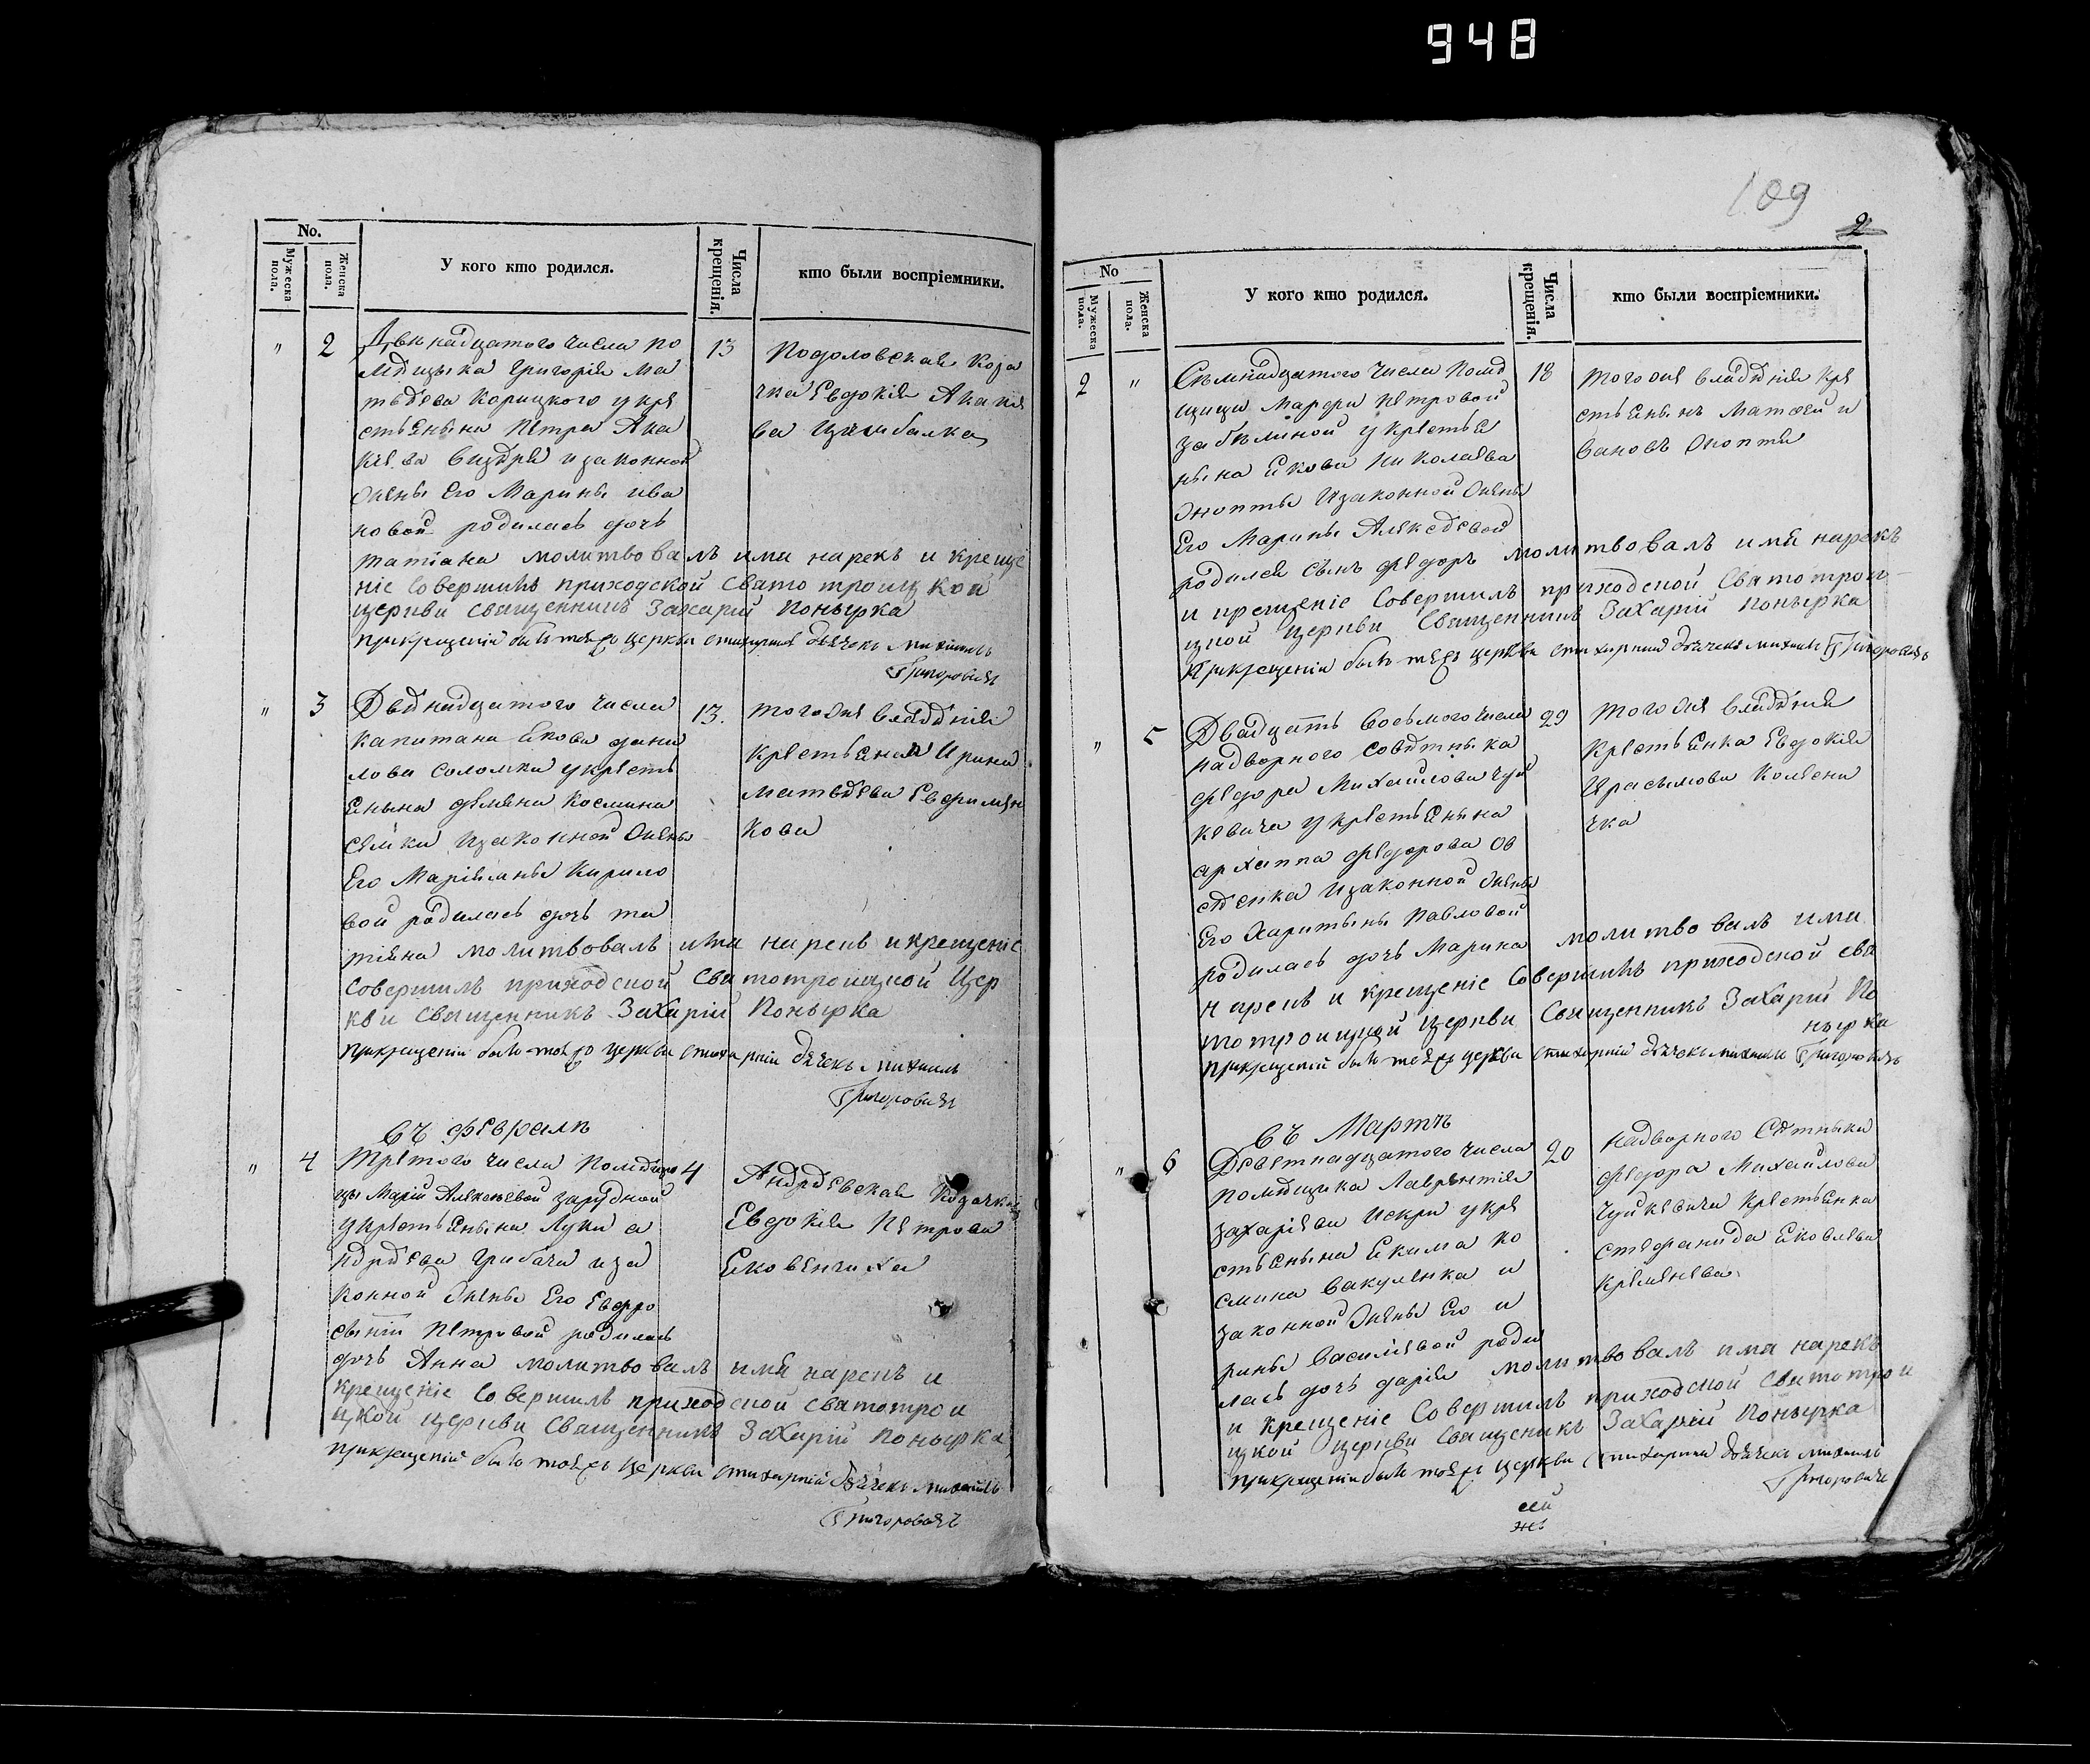 948
No.
Мужеска пола.
Женска пола.
У кого кто родился.
Числа крещенія.
кто были воспріемники.
" 2
Двенадцатого числа по
мѣщыка Григорія Ма
твѣева Корицкого укре
стьенына Петра Ака
жены Его Марины ива
новой родилась дочь
татіана молитвовалъ имя нарекъ и креще
ніе Совершилъ приходской Свято троицкой
церкви Священникъ Захарій Понырка
прикрещеніи былъ тоеяжъ церкви стихарный дьячекъ михаилъ
Григоровичъ
13
Подоловская Коза
чка Евдокія Акакіе
ва Цымбалка
" 3
Двенадцатого числа
капитана Якова дани
лова Соломки укресть
енына демяна Космина
изаконной жены
Его Маріяны Кирило
вой родилась дочь та
тіяна молитвовалъ имя нарекъ икрещеніе
Совершилъ приходской Святотроицкой Цер
кви Священникъ Захарій Понырка
прикрещеніи былъ тоеяжъ церкви стиха рній дьячекъ михаилъ
Григоровичъ
13.
тогоже владѣнія
Крестьенка Ирина
матвѣева Ефимен
кова
въ февралѣ
" 4
Третого числа Помѣщи
цы Марій Алексѣевой зарудной
укрестьенына Луки а
ндрѣева Грибача иза
конной жены Его Евфро
сыніи Петровой родилась
дочь Анна молитвовалъ имя нарекъ и
крещеніе Совершилъ приходской Святотрои
цкой церкви Священникъ Захарій Понырка
прикрещеніи былъ тоеяжъ церкви стихарній дьячекъ михаилъ
Григоровичъ
4
Андрѣевская Козачка
Евдокія Петрова
Яковенчиха
109
2
No
Мужеска пола.
Женска пола.
У кого кто родился.
Числа крещенія.
кто были воспріемники.
2 "
Семнадцатого числа Помѣ
щицы Марфы Петровой
забѣлиной укрестье
нына Якова Николаева
Оноптія Изаконной жены
Его Марины Алексѣевой
родился сынъ федоръ молитвовалъ имя нарекъ
и крещеніе Совершилъ приходской Святотрои
цкой Церкви Священникъ Захарій Понырка
прикрещеніи былъ тоеяжъ церкви стихарний дьячекъ михаилъ Григоровичъ
18
тогоже владѣнія кре
стьенынъ Матфей и
вановъ
" 5
Двадцать восьмого числа
надворного совѣтныка
федора Михайлова чуй
кевича укрестьенына
архиппа федорова Ов
сѣенка Изаконной жены
Его Харитыны Павловой
родилась дочь Марина молитвовалъ имя
нарекъ и крещеніе Совершилъ приходской свя
тотроицкой Церкви Священникъ Захарий По
нырка
прикрещеніи былъ тоеяжъ церкви стихарній дьячекъ михаилъ Григоровичъ
29
тогоже владѣнія
Крестьенка Евдокія
Ирасымова Колесни
чка
въ Мартѣ
" 6
Деветнадцатого числа
помѣщика Лаврентія
захаріева Искри укре
стьенына Екима Ко
смина вакуленка и
законной жены Его и
рины васил(і)евой роди
лась дочь дарія молитвовалъ имя нарекъ
и крещеніе Совершилъ приходской Святотрои
цкой церкви Священикъ Захарій Понырка
прикрещеніи былъ тоеяжъ церкви стихарний дьячекъ михаилъ
Григоровичъ
20
надворного Сѣтныка
федора Михайлова
Чуйкевича Крестьенка
стефанида Яковлева
Кременева